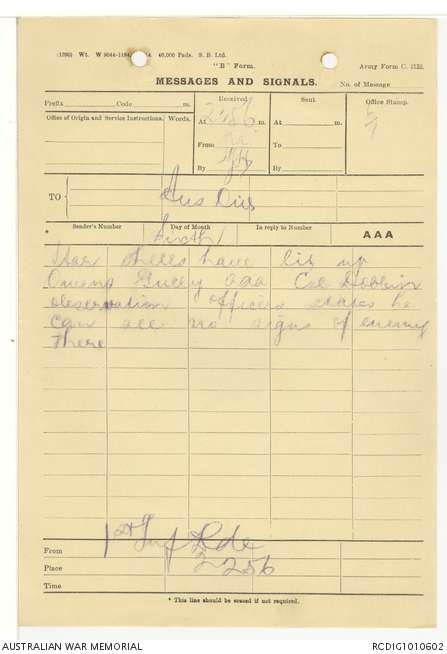 (1290) Wt. W 9044—1184 40,000 Pads. S. B. Ltd.
"B" Form.
Army Form C. 2122.
MESSAGES AND SIGNALS.
No. of Message
Prefix Code m.
Received
Sent
Office Stamp.
Office of Origin and Service Instructions.
Words.
At 2256 m.
At m.
From
To
By
By
TO
Aus Div
Sender's Number
Day of Month
In reply to Number
AAA
*
Star shells have lit up
Owens Gully aaa Col Hobbs in
observation officer states he
can see no signs of enemy
there
From
1st Inf Bde
Place
2256
Time
* This line should be erased if not required.
AUSTRALIAN WAR MEMORIAL
RCDIG1010602